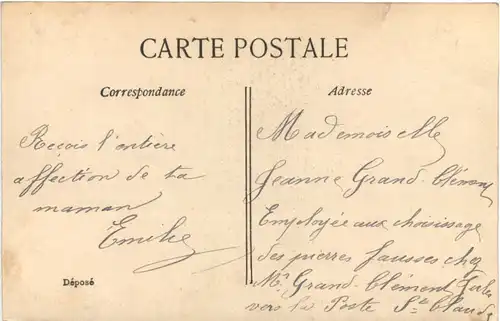 CARTE POSTALE
Correspondance
Adresse
Reçois l'entière
affection de ta
maman
Emilie
Déposé
Mademoiselle
Jeanne Grand-Clément
Employée aux choisissage
des pierres fausses chez
Mr Grand-Clément
vers la Poste St Claude